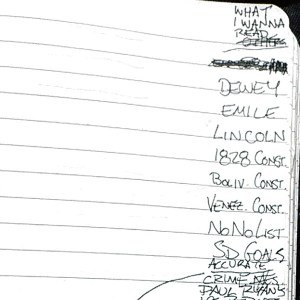 WHAT
I WANNA
READ
DEWEY
EMILE
LINCOLN
1828 CONST.
BOLIV. CONST.
VENEZ. CONST.
NO NO LIST
SD GOALS
ACCURATE
CRIME
PAUL RYAN'S